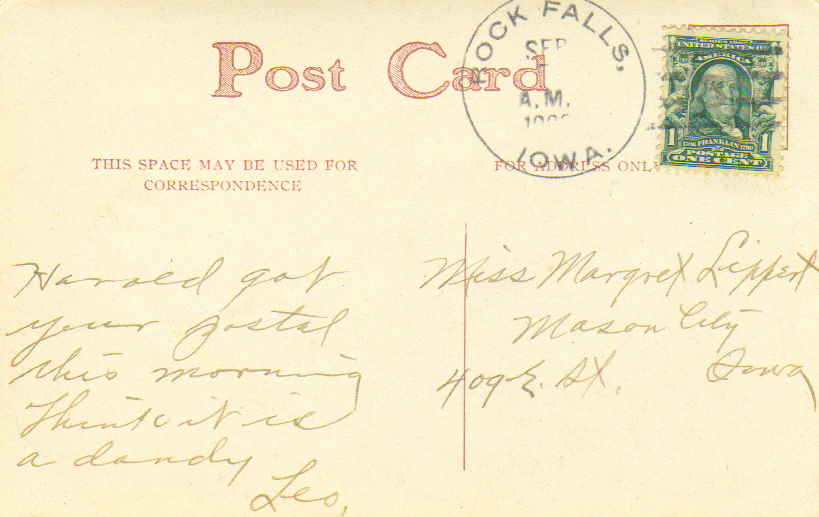 Post Card
ROCK FALLS,
SEP
A.M.
IOWA.
UNITED STATES OF
AMERICA
1 1
FRANKLIN
POSTAGE
ONE CENT
THIS SPACE MAY BE USED FOR
CORRESPONDENCE
FOR ADDRESS ONLY
Harold got
your postal
this morning
Think it is
a dandy
Leo,
Miss Margret Lippert
Mason City
409 E. St. Iowa